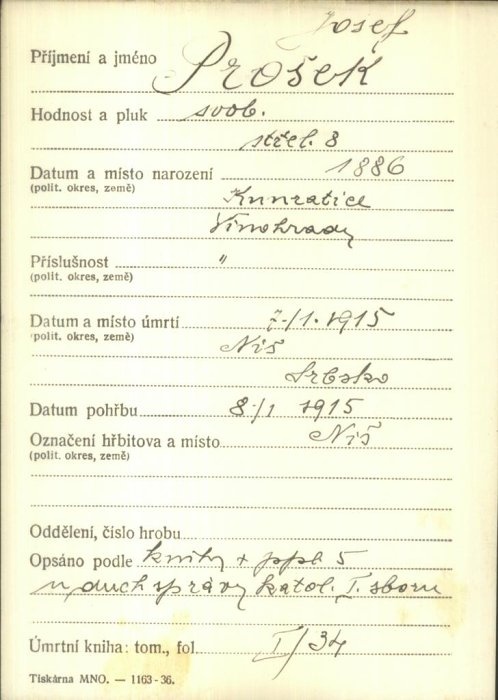 Josef
Příjmení a jméno Prošek
Hodnost a pluk svob.
střel. 8
Datum a místo narození 1886
(polit. okres, země)
Kunratice
Vinohrady
Příslušnost "
(polit. okres, země)
Datum a místo úmrtí 7./1. 1915
(polit. okres, země)
Niš
Srbsko
Datum pohřbu 8/1 1915
Označení hřbitova a místo Niš
(polit. okres, země)
Oddělení, číslo hrobu
Opsáno podle knihy + ppl. 5
u duch správy katol. I. sboru
Úmrtní kniha: tom., fol. I/34
Tiskárna MNO. — 1163-36.